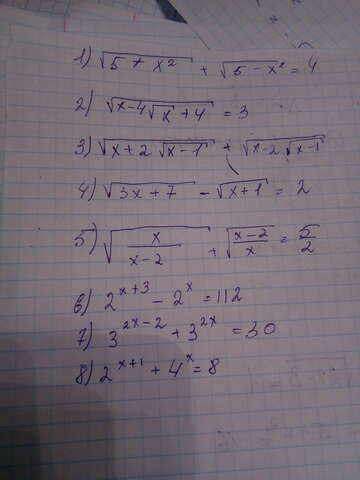 1) √(5 + x²) + √(5 - x²) = 4
2) √(x - 4√x + 4) = 3
3) √(x + 2√(x - 1)) + √(x - 2√(x - 1))
4) √(3x + 7) - √(x + 1) = 2
5) √(x/(x - 2)) + √((x - 2)/x) = 5/2
6) 2^(x+3) - 2^x = 112
7) 3^(2x-2) + 3^(2x) = 30
8) 2^(x+1) + 4^x = 8